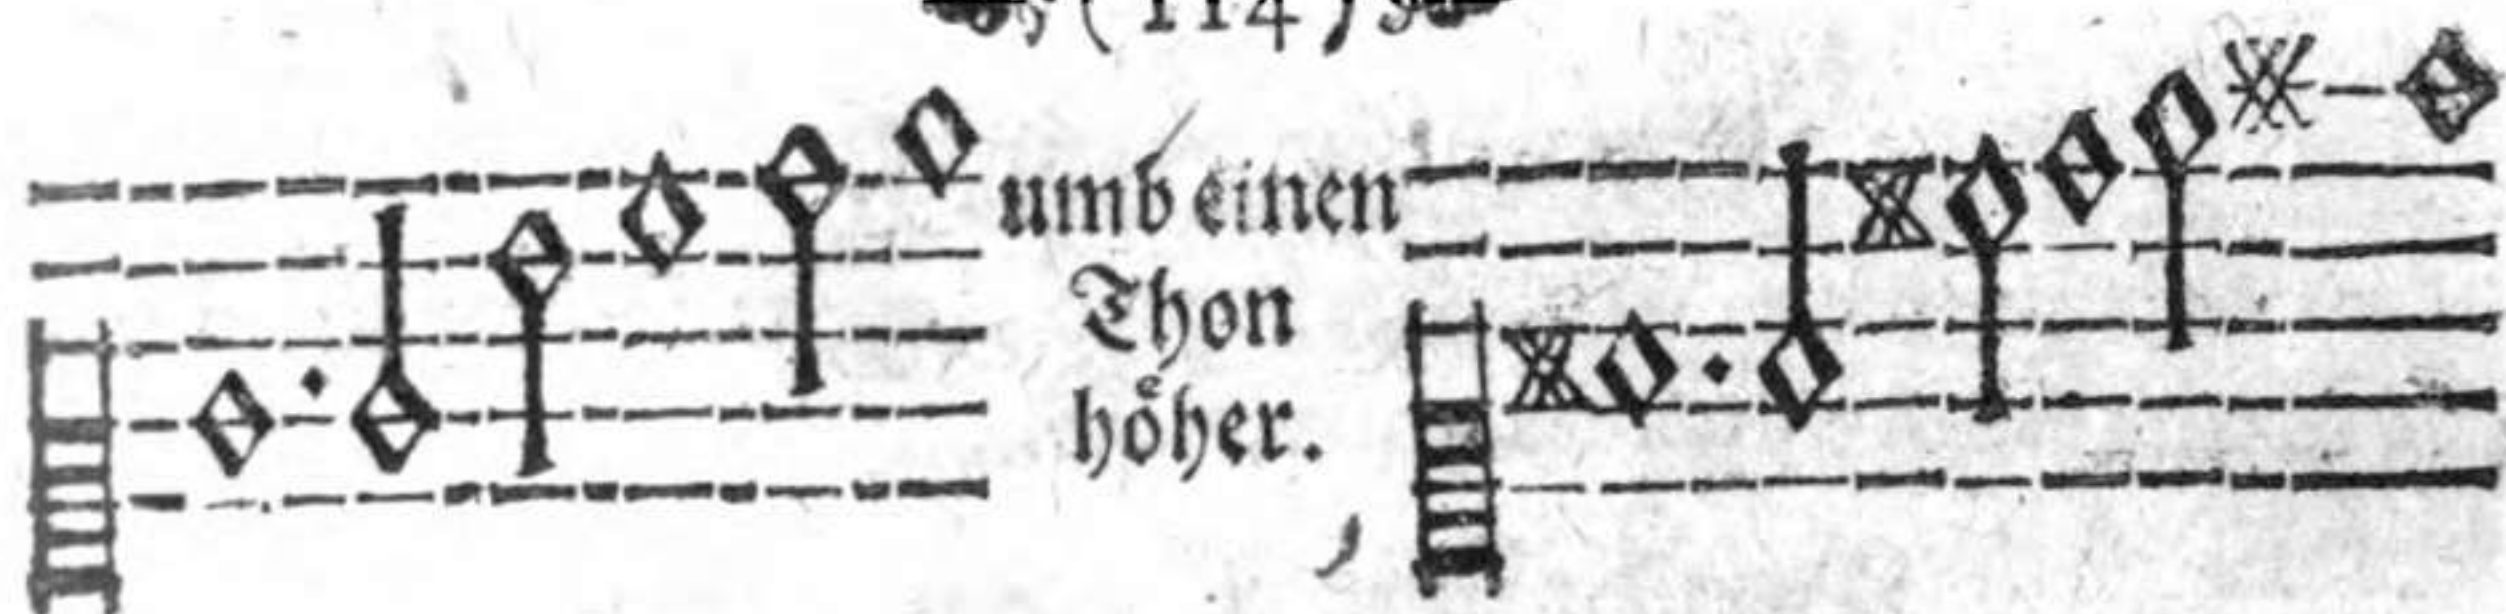 ( 114 )
umb einen
Thon
höher.